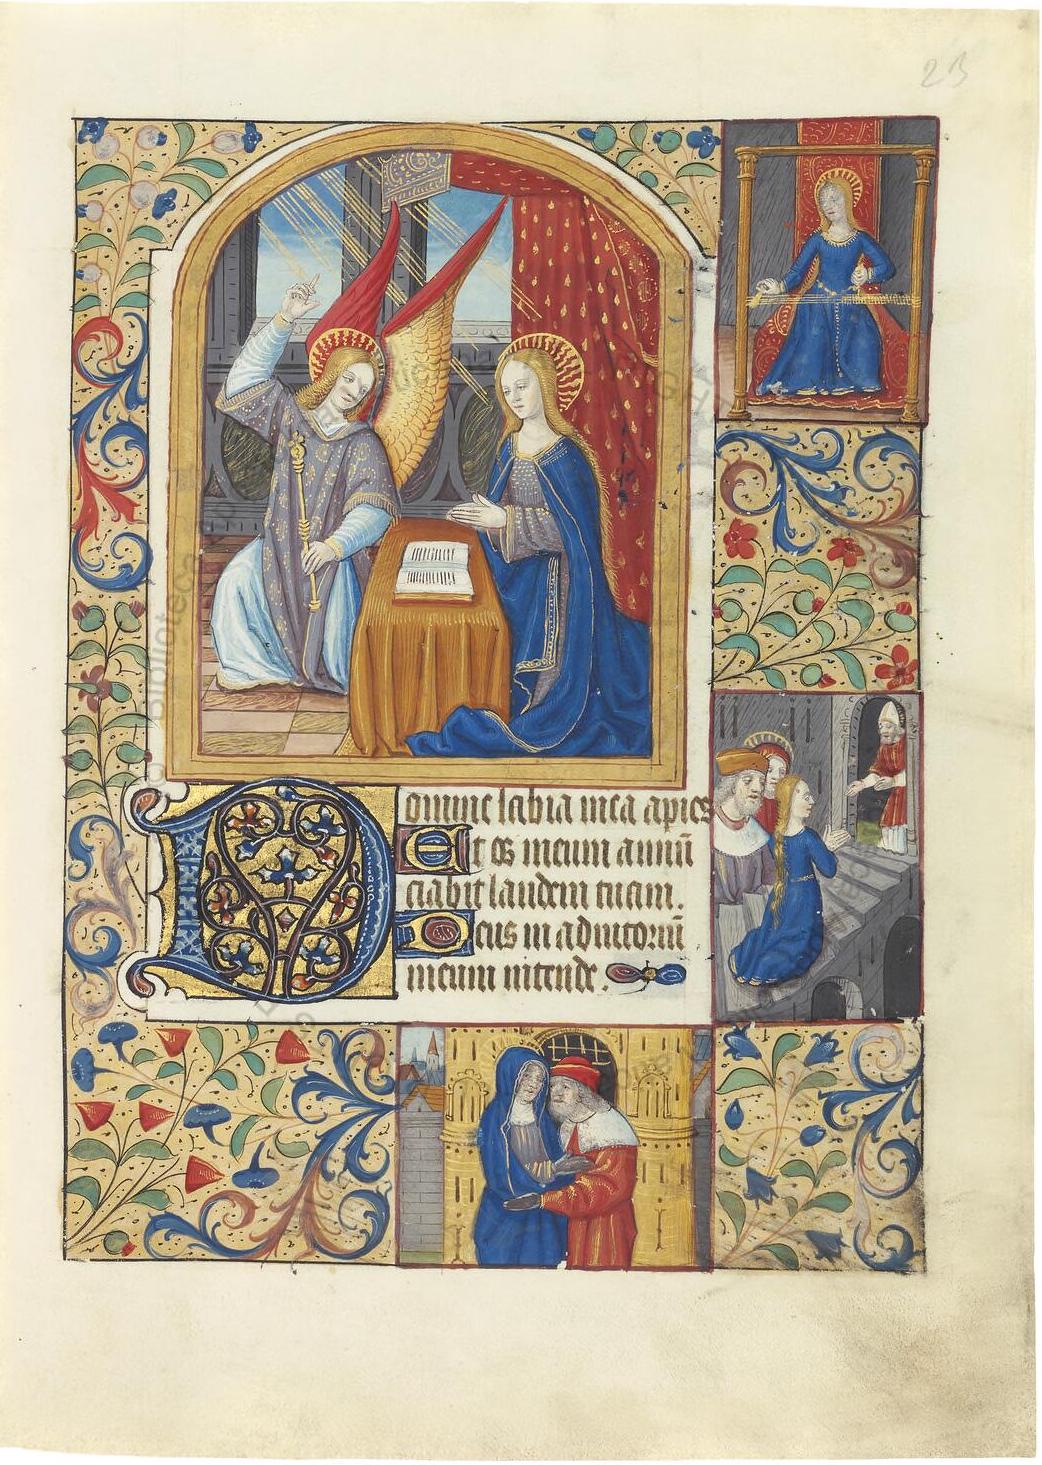 23
Domine labia mea apies
Et os meum annũ
ciabit laudem tuam.
Deus in adiutoriũ
meum intende.